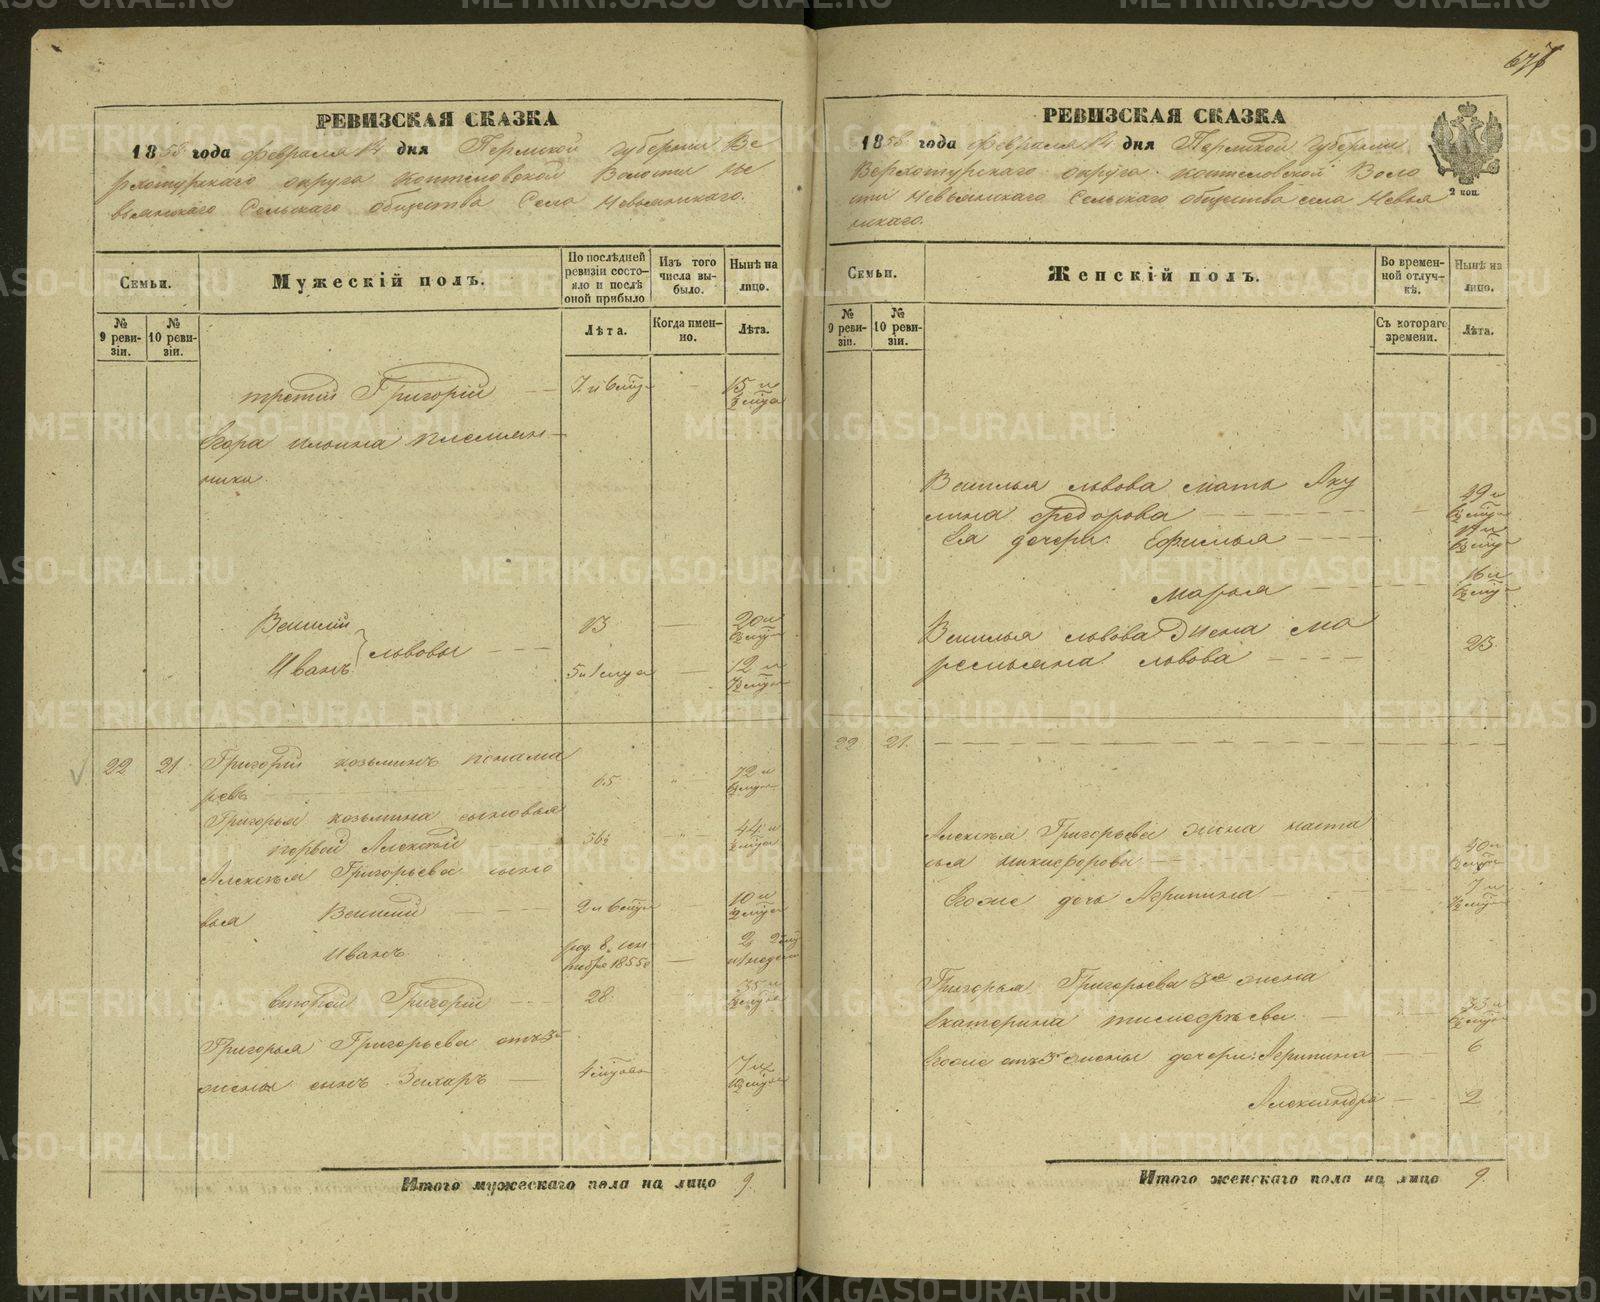 РЕВИЗСКАЯ СКАЗКА
1858 года февраля 14 дня Пермской губернии Ве
рхотурскаго округа Коптеловской Волости Не
вьянскаго Сельскаго общества Села Невьянскаго.
Семьи.
Мужескій полъ.
По послѣдней ревизіи состояло и послѣ оной прибыло
Изъ того числа выбыло.
Нынѣ на лицо.
№ 9 ревизіи.
№ 10 ревизіи.
Лѣта.
Когда именно.
Лѣта.
третій Григорій 7 и 6 15 и
Егора Ильина племян-
ники
Василій 13 20 и
Львовы
Иванъ 5 и 12 и
22 21. Григорій Козьминъ Понама
ревъ 65 72 и
Григорья Козьмина сыновья
первой Алексѣй 36½ 44 и
Алексѣя Григорьева сыно
вья Василій 2 и 6 10 и
Иванъ род. 8. сен-
тября 1855 2
второй Григорій 28. 35 и
Григорья Григорьева отъ 3й
жены сынъ Захаръ 7 и
Итого мужескаго пола на лицо 9
РЕВИЗСКАЯ СКАЗКА
1858 года февраля 14 дня Пермской губерніи
Верхотурскаго округа Коптеловской Воло
сти Невьянскаго Сельскаго общества села Невья
нскаго.
2 коп.
Семьи.
Женскій полъ.
Во временной отлучкѣ.
Нынѣ на лицо.
№ 9 ревизіи.
№ 10 ревизіи.
Съ котораго времени.
Лѣта.
Василья Львова мать Аку
лина Федорова 49 и
Ея дочери: Ефимья
Марья 16 и
Василья Львова жена Ма
ремьяна Львова 23
22 21.
Алексѣя Григорьева жена Ната
лья Никифорова 40 и
Егоже дочь Агрипина 7 и
Григорья Григорьева 3я жена
Екатерина Тимофѣева 33 и
Егоже отъ 3й жены дочери: Агрипина 6
Александра 2
Итого женскаго пола на лицо 9
METRIKI.GASO-URAL.RU